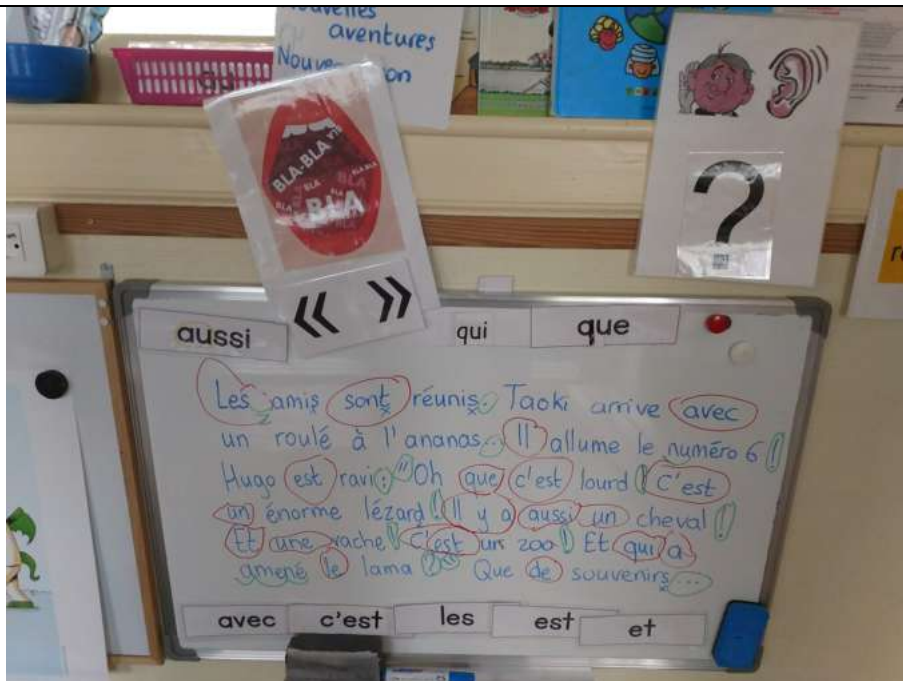 Nouvelles
aventures
BLA-BLA
BLA
BLA
BLA
BLA
BLA
« »
?
aussi
qui
que
Les amis sont réunis. Taoki arrive avec
un roulé à l'ananas. Il allume le numéro 6 !
Hugo est ravi : "Oh que c'est lourd ! C'est
un énorme lézard ! Il y a aussi un cheval !
Et une vache ! C'est un zoo ! Et qui a
amené le lama ?" Que de souvenirs...
avec
c'est
les
est
et